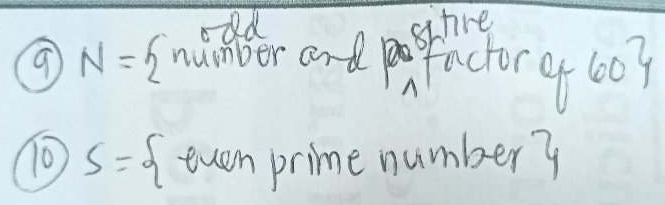 ⑨ N = { odd number and positive factor of 60}
⑩ S = { even prime number }